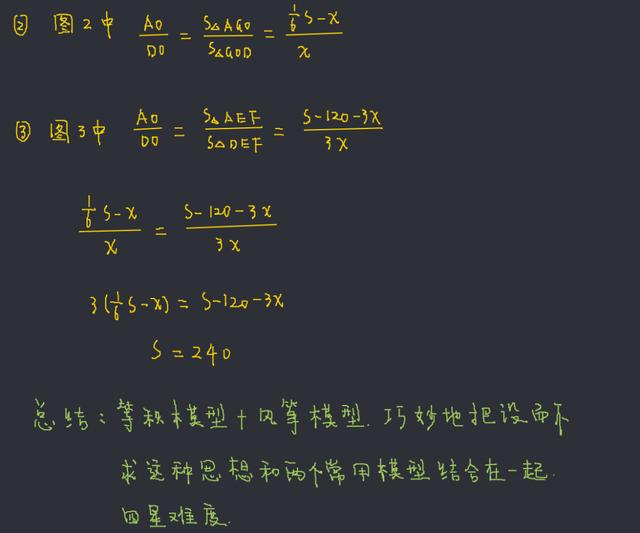 ② 图2中 AO/DO = S△AGO/S△GOD = (1/6 S-x)/x
③ 图3中 AO/DO = S△AEF/S△DEF = (S-120-3x)/3x
(1/6 S-x)/x = (S-120-3x)/3x
3(1/6 S-x) = S-120-3x
S = 240
总结：等积模型+风筝模型. 巧妙地把设而不
求这种思想和两个常用模型结合在一起.
四星难度.